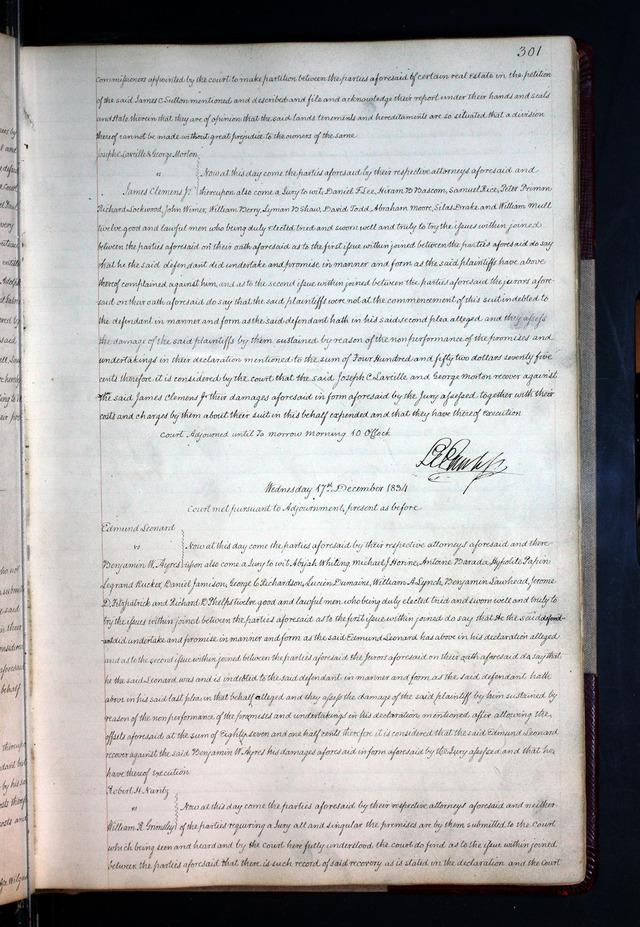 301
commissioners appointed by the court to make partition between the parties aforesaid of certain real Estate in the petition
of the said James C. Sutton mentioned and described and file and acknowledge their report under their hands and seals
and state therein that they are of opinion that the said lands tenements and hereditaments are so situated that a division
thereof cannot be made without great prejudice to the owners of the same
Joseph C. Laville & George Morton
vs Now at this day come the parties aforesaid by their respective attorneys aforesaid and
James Clemens Jr. thereupon also come a Jury to wit, Daniel F Lee, Hiram B Bascom, Samuel Rice, Peter Primm
Richard Lockwood, John Wimer, William Berry, Lyman D Shaw, David Todd, Abraham Moore, Silas Drake and William Mull
twelve good and lawful men who being duly elected tried and sworn well and truly to try the issues within joined
between the parties aforesaid on their oath aforesaid as to the first issue within joined between the parties aforesaid do say
that he the said defendant did undertake and promise in manner and form as the said plaintiffs have above
thereof complained against him, and as to the second issue within joined between the parties aforesaid the jurors afore-
said on their oath aforesaid do say that the said plaintiffs were not at the commencement of this suit indebted to
the defendant in manner and form as the said defendant hath in his said second plea alleged and they assess
the damage of the said plaintiffs by them sustained by reason of the non performance of the promises and
undertakings in their declaration mentioned to the sum of Four Hundred and fifty two dollars seventy five
cents therefore it is considered by the court that the said Joseph C Laville and George Morton recover against
the said James Clemens Jr their damages aforesaid in form aforesaid by the Jury assessed together with their
costs and charges by them about their suit in this behalf expended and that they have thereof execution
Court Adjourned until To morrow Morning 10 OClock
Wednesday 17th December 1834
Court met pursuant to Adjournment, present as before
Edmund Leonard
vs Now at this day come the parties aforesaid by their respective attorneys aforesaid and there
Benjamin W. Ayres upon also come a Jury to wit Abijah Whiting, Michael J Horine, Antoine Barada, Hypolite Papin
Legrand Rucker, Daniel Jamison, George C Richardson, Lucien Dumaine, William A Lynch, Benjamin Lawhead, Jerome
D. Fitzpatrick and Richard D Phelps twelve good and lawful men, who being duly elected tried and sworn well and truly to
try the issue within joined between the parties aforesaid as to the first issue within joined do say that He the said defend-
ant did undertake and promise in manner and form as the said Edmund Leonard has above in his declaration alleged
and as to the second issue within joined between the parties aforesaid the Jurors aforesaid on their oath aforesaid do say that
he the said Leonard was and is indebted to the said defendant in manner and form as the said defendant hath
above in his said last plea in that behalf alleged and they assess the damage of the said plaintiff by him sustained by
reason of the non performance of the promises and undertakings in his declaration mentioned after allowing the
offsets aforesaid at the sum of Eighty seven and one half cents therefore it is considered that the said Edmund Leonard
recover against the said Benjamin W. Ayres his damages aforesaid in form aforesaid by the Jury assessed and that he
have thereof execution
Robert H. Nantz
vs Now at this day come the parties aforesaid by their respective attorneys aforesaid and neither
William R Grimsley of the parties requiring a Jury all and singular the premises are by them submitted to the Court
which being seen and heard and by the court here fully understood the court do find as to the issue within joined
between the parties aforesaid that there is such record of said recovery as is stated in the declaration and the Court